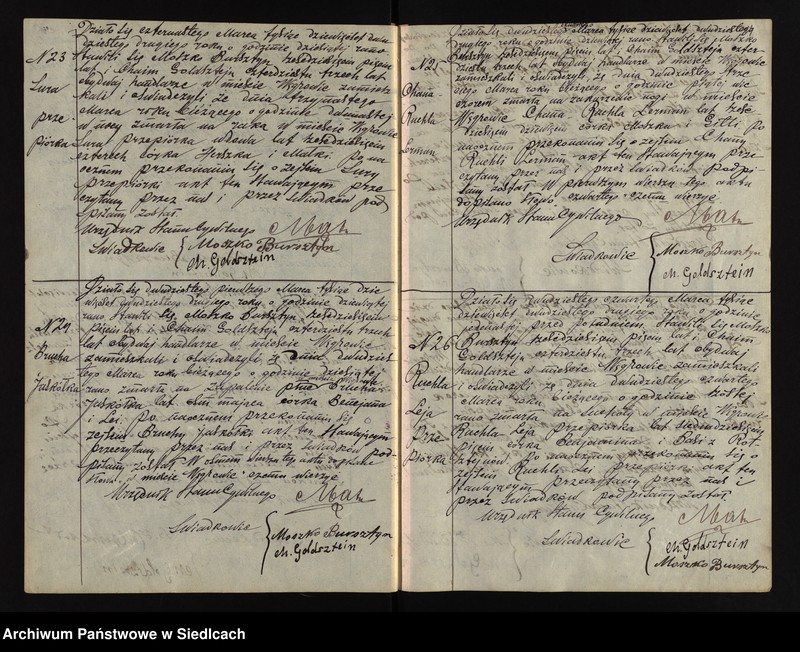 N 23
Sura
prze-
piórka
Działo się czternastego Marca tysiąc dziewięćset dwu
dziestego drugiego roku o godzinie dziesiątej rano
stawili się Moszko Bursztyn sześćdziesiąt pięciu
lat i Chaim Goldsztejn czterdziestu trzech lat
obydwaj handlarze w mieście Węgrowie zamiesz
kali i oświadczyli że dnia trzynastego
Marca roku bieżącego o godzinie dwunastej
w nocy zmarła w mieście Węgrowie
Sura Przepiórka wdowa lat sześćdziesiąt
czterech córka Herszka i Malki Po na
ocznem przekonaniu się o zejściu Sury
Przepiórki akt ten stawającym prze
czytany przez nas i przez świadków pod
pisany został.
Urzędnik Stanu Cywilnego
Świadkowie Moszko Bursztyn
M. Goldsztein
N 24
Brucha
Jaskółka
Działo się dwudziestego pierwszego Marca tysiąc dzie
więćset dwudziestego drugiego roku o godzinie dziewiątej
rano stawili się Moszko Bursztyn sześćdziesiąt
pięciu lat i Chaim Goldsztejn czterdziestu trzech
lat obydwaj handlarze w mieście Węgrowie
zamieszkali i oświadczyli że dnia dwudzies
tego Marca roku bieżącego o godzinie dziesiątej
rano zmarła na zapalenie płuc Brucha
Jaskółka lat ośm mająca córka Benejama
i Lei. Po naocznem przekonaniu się o
zejściu Bruchy Jaskółki akt ten stawającym
przeczytany przez nas i przez świadków pod-
pisany został W ósmym wierszu tego aktu dopisano
słowa "w mieście Węgrowie" czemu wierzyć
Urzędnik Stanu Cywilnego
Świadkowie
Moszko Bursztyn
M. Goldsztein
N 25
Chana
Ruchla
Lerman
Działo się dwudziestego Marca tysiąc dziewięćset dwudziestego
drugiego roku o godzinie dziesiątej rano stawili się Moszko
Bursztyn sześćdziesiąt pięciu lat i Chaim Goldsztejn czter
dziestu trzech lat obydwaj handlarze w mieście Węgrowie
zamieszkali i oświadczyli, że dnia dwudziestego
Marca roku bieżącego o godzinie piątej wie
czorem zmarła na zakażenie nogi w mieście
Węgrowie Chana Ruchla Lerman lat sześć
dziesiąt córka Moszka i Estli Po
naocznem przekonaniu się o zejściu Chany
Ruchli Lerman akt ten stawającym prze
czytany przez nas i przez świadków podpi
sany został W pierwszym wierszu tego aktu
dopisano słowo czemu wierzyć
Urzędnik Stanu Cywilnego
Świadkowie
Moszko Bursztyn
M. Goldsztein
N 26
Ruchla
Leja
Prze
piórka
Działo się dwudziestego czwartego Marca tysiąc
dziewięćset dwudziestego drugiego roku o godzinie
przed południem, stawili się Moszko
Bursztyn sześćdziesiąt pięciu lat i Chaim
Goldsztejn czterdziestu trzech lat obydwaj
handlarze w mieście Węgrowie zamieszkali
i oświadczyli że dnia dwudziestego czwartego
Marca roku bieżącego o godzinie szóstej
rano zmarła na suchoty w mieście Węgrowie
Ruchla Leja Przepiórka lat siedmdziesiąt
pięciu córka Benjamina i Basi z Rot
sztejnów Po naocznem przekonaniu się o
zejściu Ruchli Lei Przepiórki akt ten
stawającym przeczytany przez nas i
przez świadków podpisany został
Urzędnik Stanu Cywilnego
Świadkowie
M. Goldsztein
Moszko Bursztyn
Archiwum Państwowe w Siedlcach